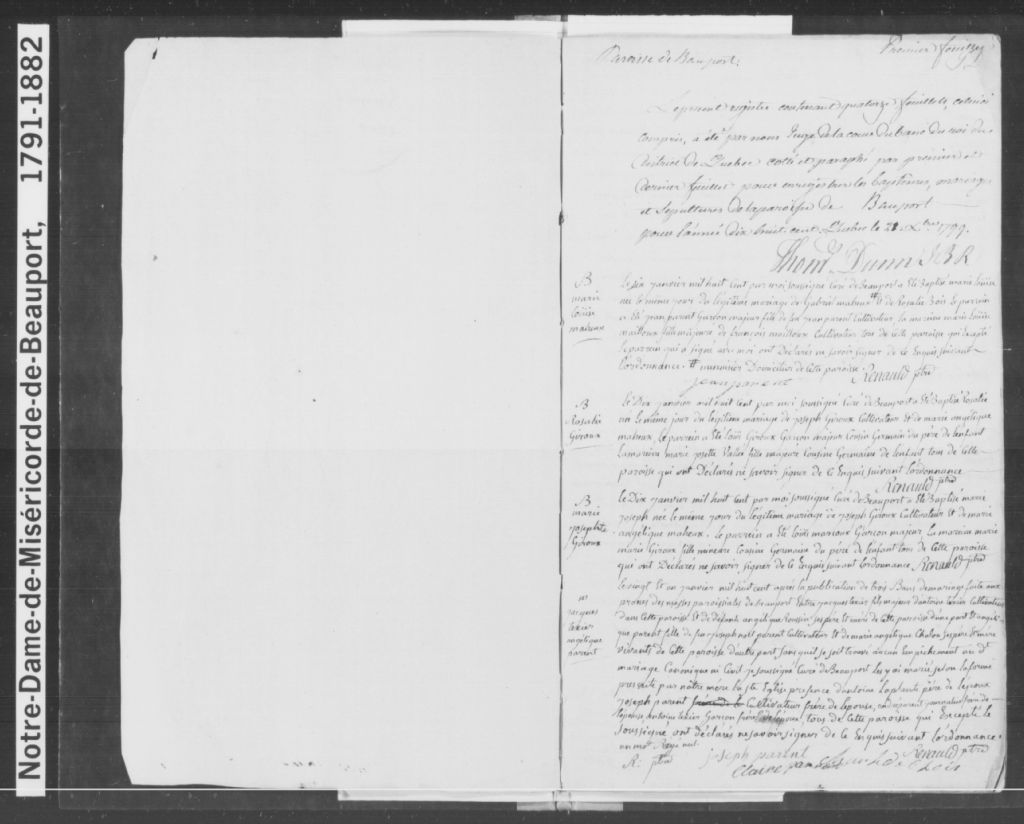 Notre-Dame-de-Miséricorde-de-Beauport, 1791-1882
Paroisse de Bauport.
Premier feuillet
Le present registre contenant quatorze feuillets, celui ci
compris, a été par nous Juge de la cour du banc du roi du
district de Quebec cotté et paraphé par premier et
dernier feuillet pour enregistrer les baptêmes, mariages
et sepultures de la paroisse de Bauport
pour l'année dix huit cent Quebec le 21 Xbre 1799.
Thoms Dunn JBR
B
marie
louise
maheux
Le dix janvier mil huit cent par moi soussigné Curé de Beauport a été Baptisé marie louise
née le même jour du légitime mariage de Gabriel maheux # et de Rosalie Bois le parrein
a été jean parent Garçon majeur fils de jean parent Cultivateur la mareine marie louise
mailloux fille majeure de françois mailloux Cultivateur tous de cette paroisse qui excepté
le parrein qui a signé avec moi ont Déclarés ne savoir signer de ce Enquis suivant
l'ordonnance. # menuisier Domicilier de cette paroisse
jean parent
Renauld ptre
B
Rosalie
Giroux
Le Dix janvier mil huit cent par moi soussigné Curé de Beauport a été Baptisé Rosalie
née le même jour du légitime mariage de joseph Giroux Cultivateur et de marie angélique
maheux, le parrein a été louis Giroux Garçon majeur Cousin Germain du père de l'enfant
la mareine marie josette Vallée fille majeure Cousine Germaine de l'enfant tous de cette
paroisse qui ont Déclarés ne savoir signer de ce Enquis suivant l'ordonnance
Renauld ptre
B
marie
josephte
Giroux
Le Dix janvier mil huit cent par moi soussigné Curé de Beauport a été Baptisé marie
joseph née le même jour du légitime mariage de joseph Giroux Cultivateur et de marie
angelique maheux. Le parrein a été louis marcoux Garçon majeur La mareine marie
marie Giroux fille mineure Cousine Germaine du père de l'enfant tous de cette paroisse
qui ont Déclarés ne savoir signer de ce Enquis suivant l'ordonnance Renauld ptre
m
jacques
texier
angélique
parent
Le vingt et un janvier mil huit cent après la publication de trois Bans de mariage faite aux
prones des messes paroissiales de Beauport Entre jacques texier fils majeur d'antoine texier Cultivateur
dans cette paroisse et de défunte angélique ses père et mère de cette paroisse d'une part et angéli-
que parent fille de joseph parent Cultivateur et de marie angélique Chalou ses père et mère
vivants de cette paroisse d'autre part sans qu'il se soit trouvé aucun Empêchement au dt
mariage Canonique ni Civil je soussigné Curé de Beauport les y ai marié selon la forme
prescrite par nôtre mère la ste Eglise présence d'antoine père de l'époux
joseph parent Cultivateur frère de l'épouse,
l'épouse Antoine texier Garçon frère de l'époux, tous de cette paroisse qui Excepté le
Soussigné ont déclarés ne savoir signer de ce Enquis suivant l'ordonnance.
un mot Rayé nul.
R: ptre
joseph parent
Renauld ptre
Claire parent